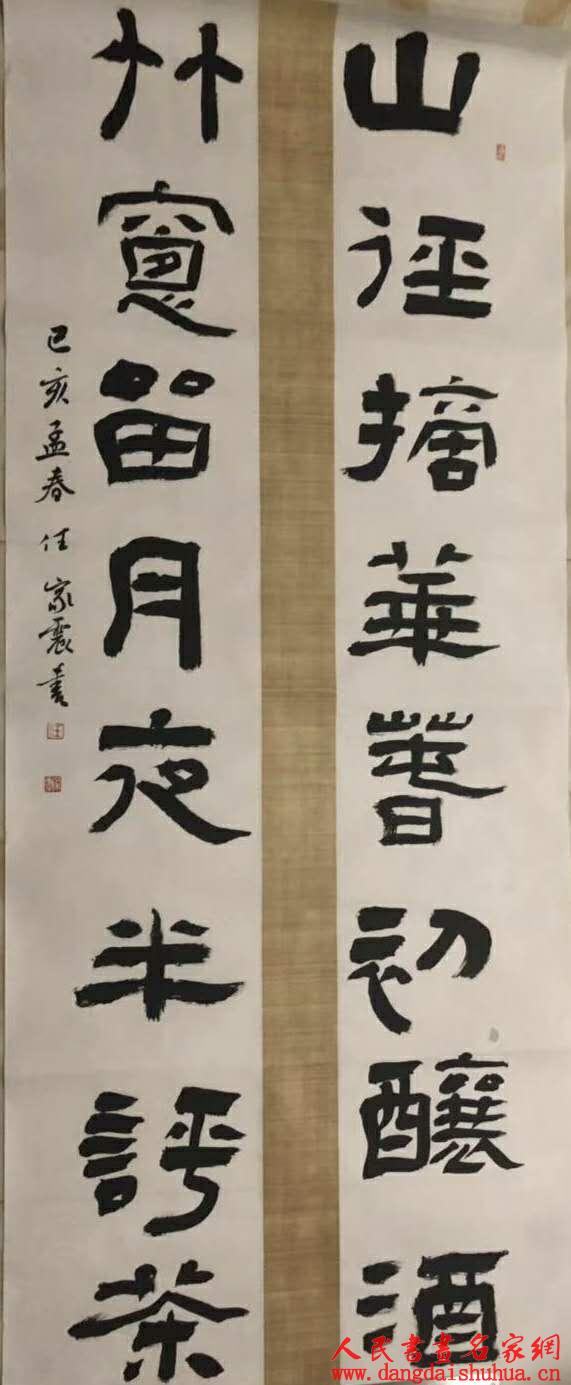 山徑摘華萅初釀酒
竹窻畱月夜半評茶
己亥孟春任家震書
人民書畫名家網
www.dangdaishuhua.cn